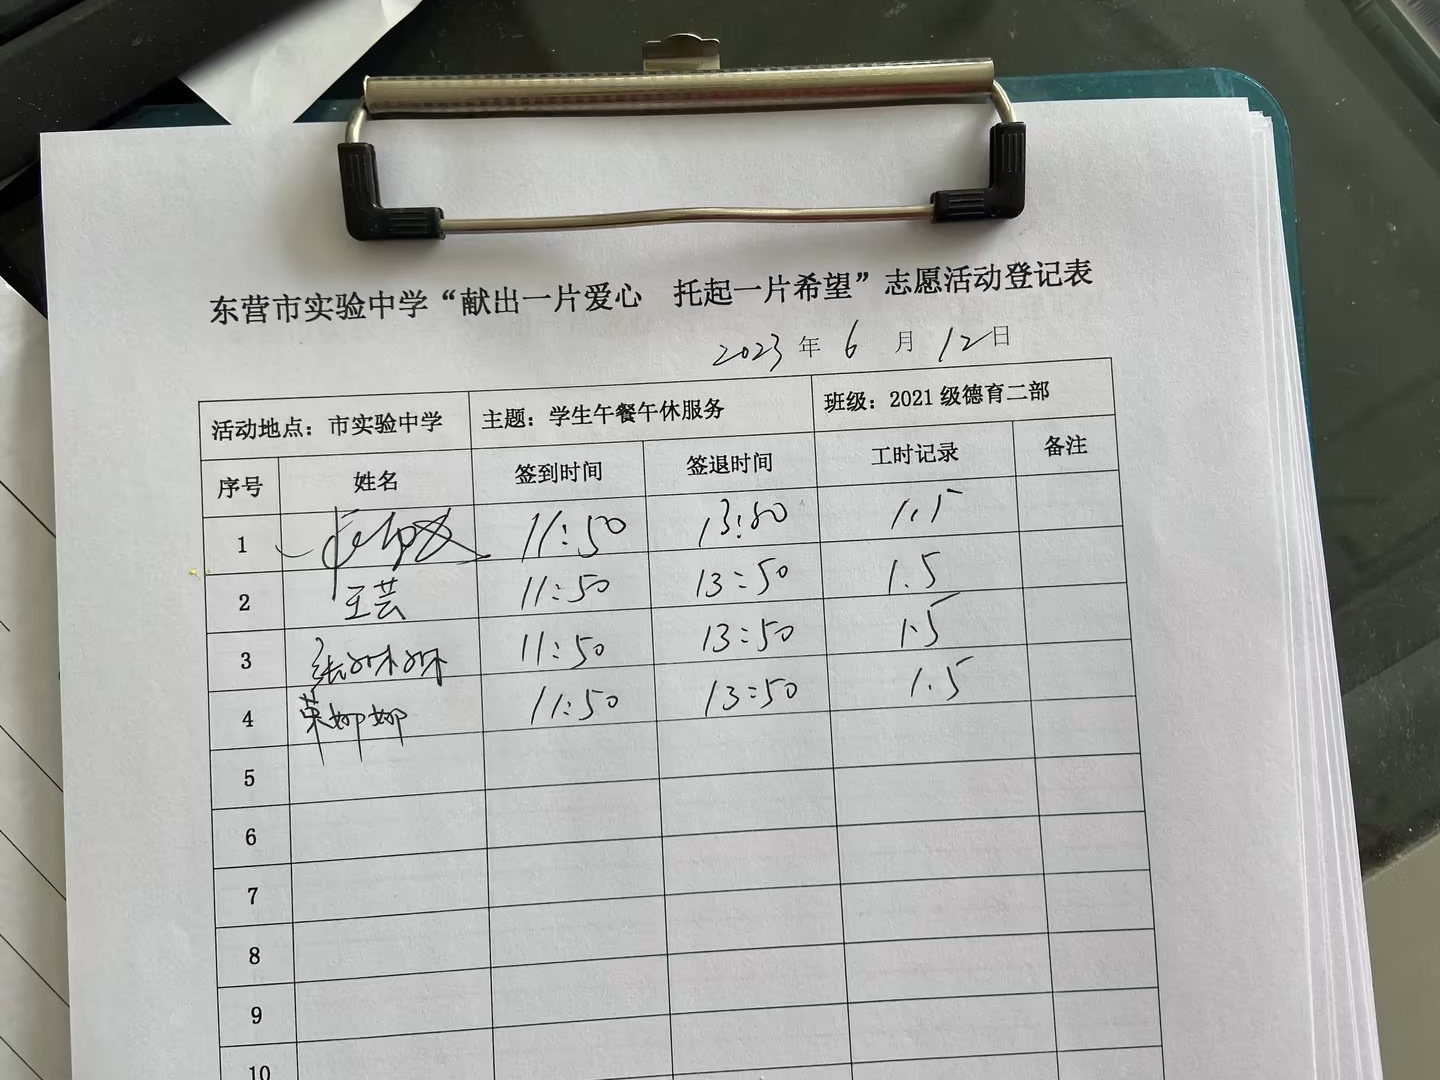 东营市实验中学“献出一片爱心 托起一片希望”志愿活动登记表
2023 年 6 月 12 日
活动地点：市实验中学 主题：学生午餐午休服务 班级：2021 级德育二部
序号 姓名 签到时间 签退时间 工时记录 备注
1 11:50 13:50 1.5
2 王芸 11:50 13:50 1.5
3 张妹妹 11:50 13:50 1.5
4 荣娜娜 11:50 13:50 1.5
5
6
7
8
9
10